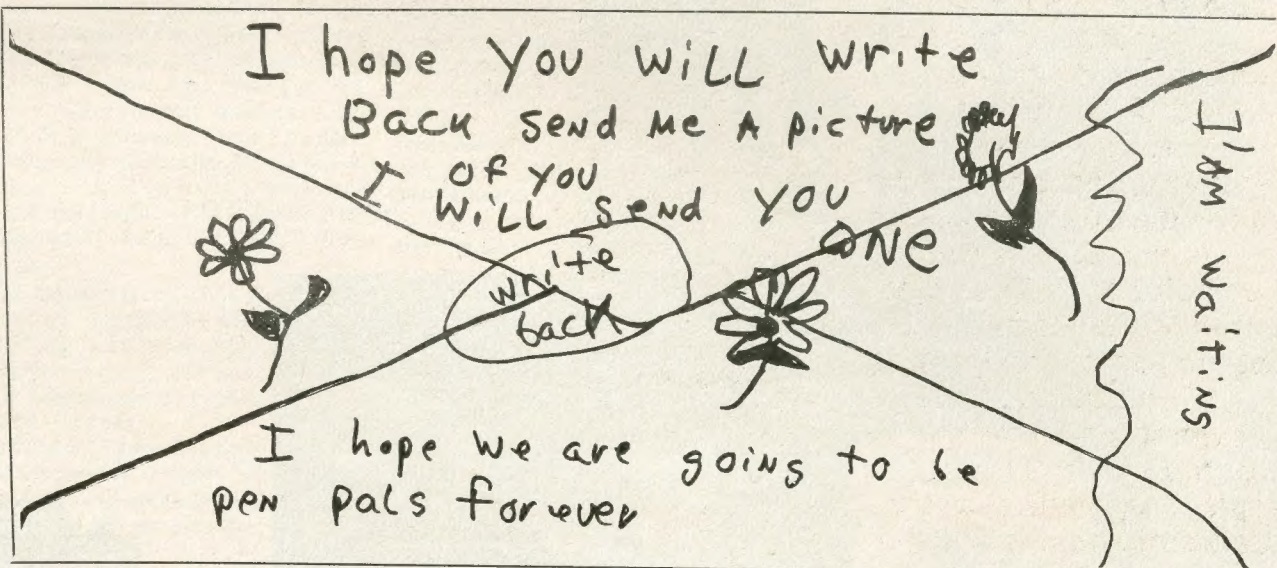 I hope You WiLL write
Back send Me A picture
of you
I WiLL send you
ONe
write
back
I hope we are going to be
pen pals forever
I'AM waiting